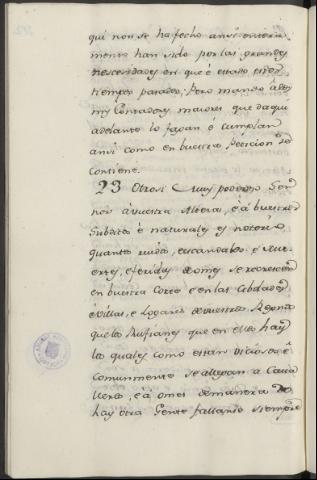 qui non se ha fecho ansi entera-
mente han sido por las grandes
nescesidades en que è estado estos
tiempos pasados, Pero mando à los
mis Contadores maiores que daqui
adelante lo fagan é cumplan
ansi como en buestra Peticion se
contiene.
23 Otrosi Muy poderoso Señ
nor à vuestra Alteza, è á buestros
Subditos è naturales es notorio
quantos ruidos, escandalos è Mu-
ertes, è feridas de omes se recrescen
en buestra Corte è en las Cibdades
è villas, è Logares de vuestros Regnos
que los Rufianes que en ellos hay
los quales como estan viciosos è
comunmente se allegan a Cava-
lleros, è à omes de manera do
hay otra Gente fallanse siempre